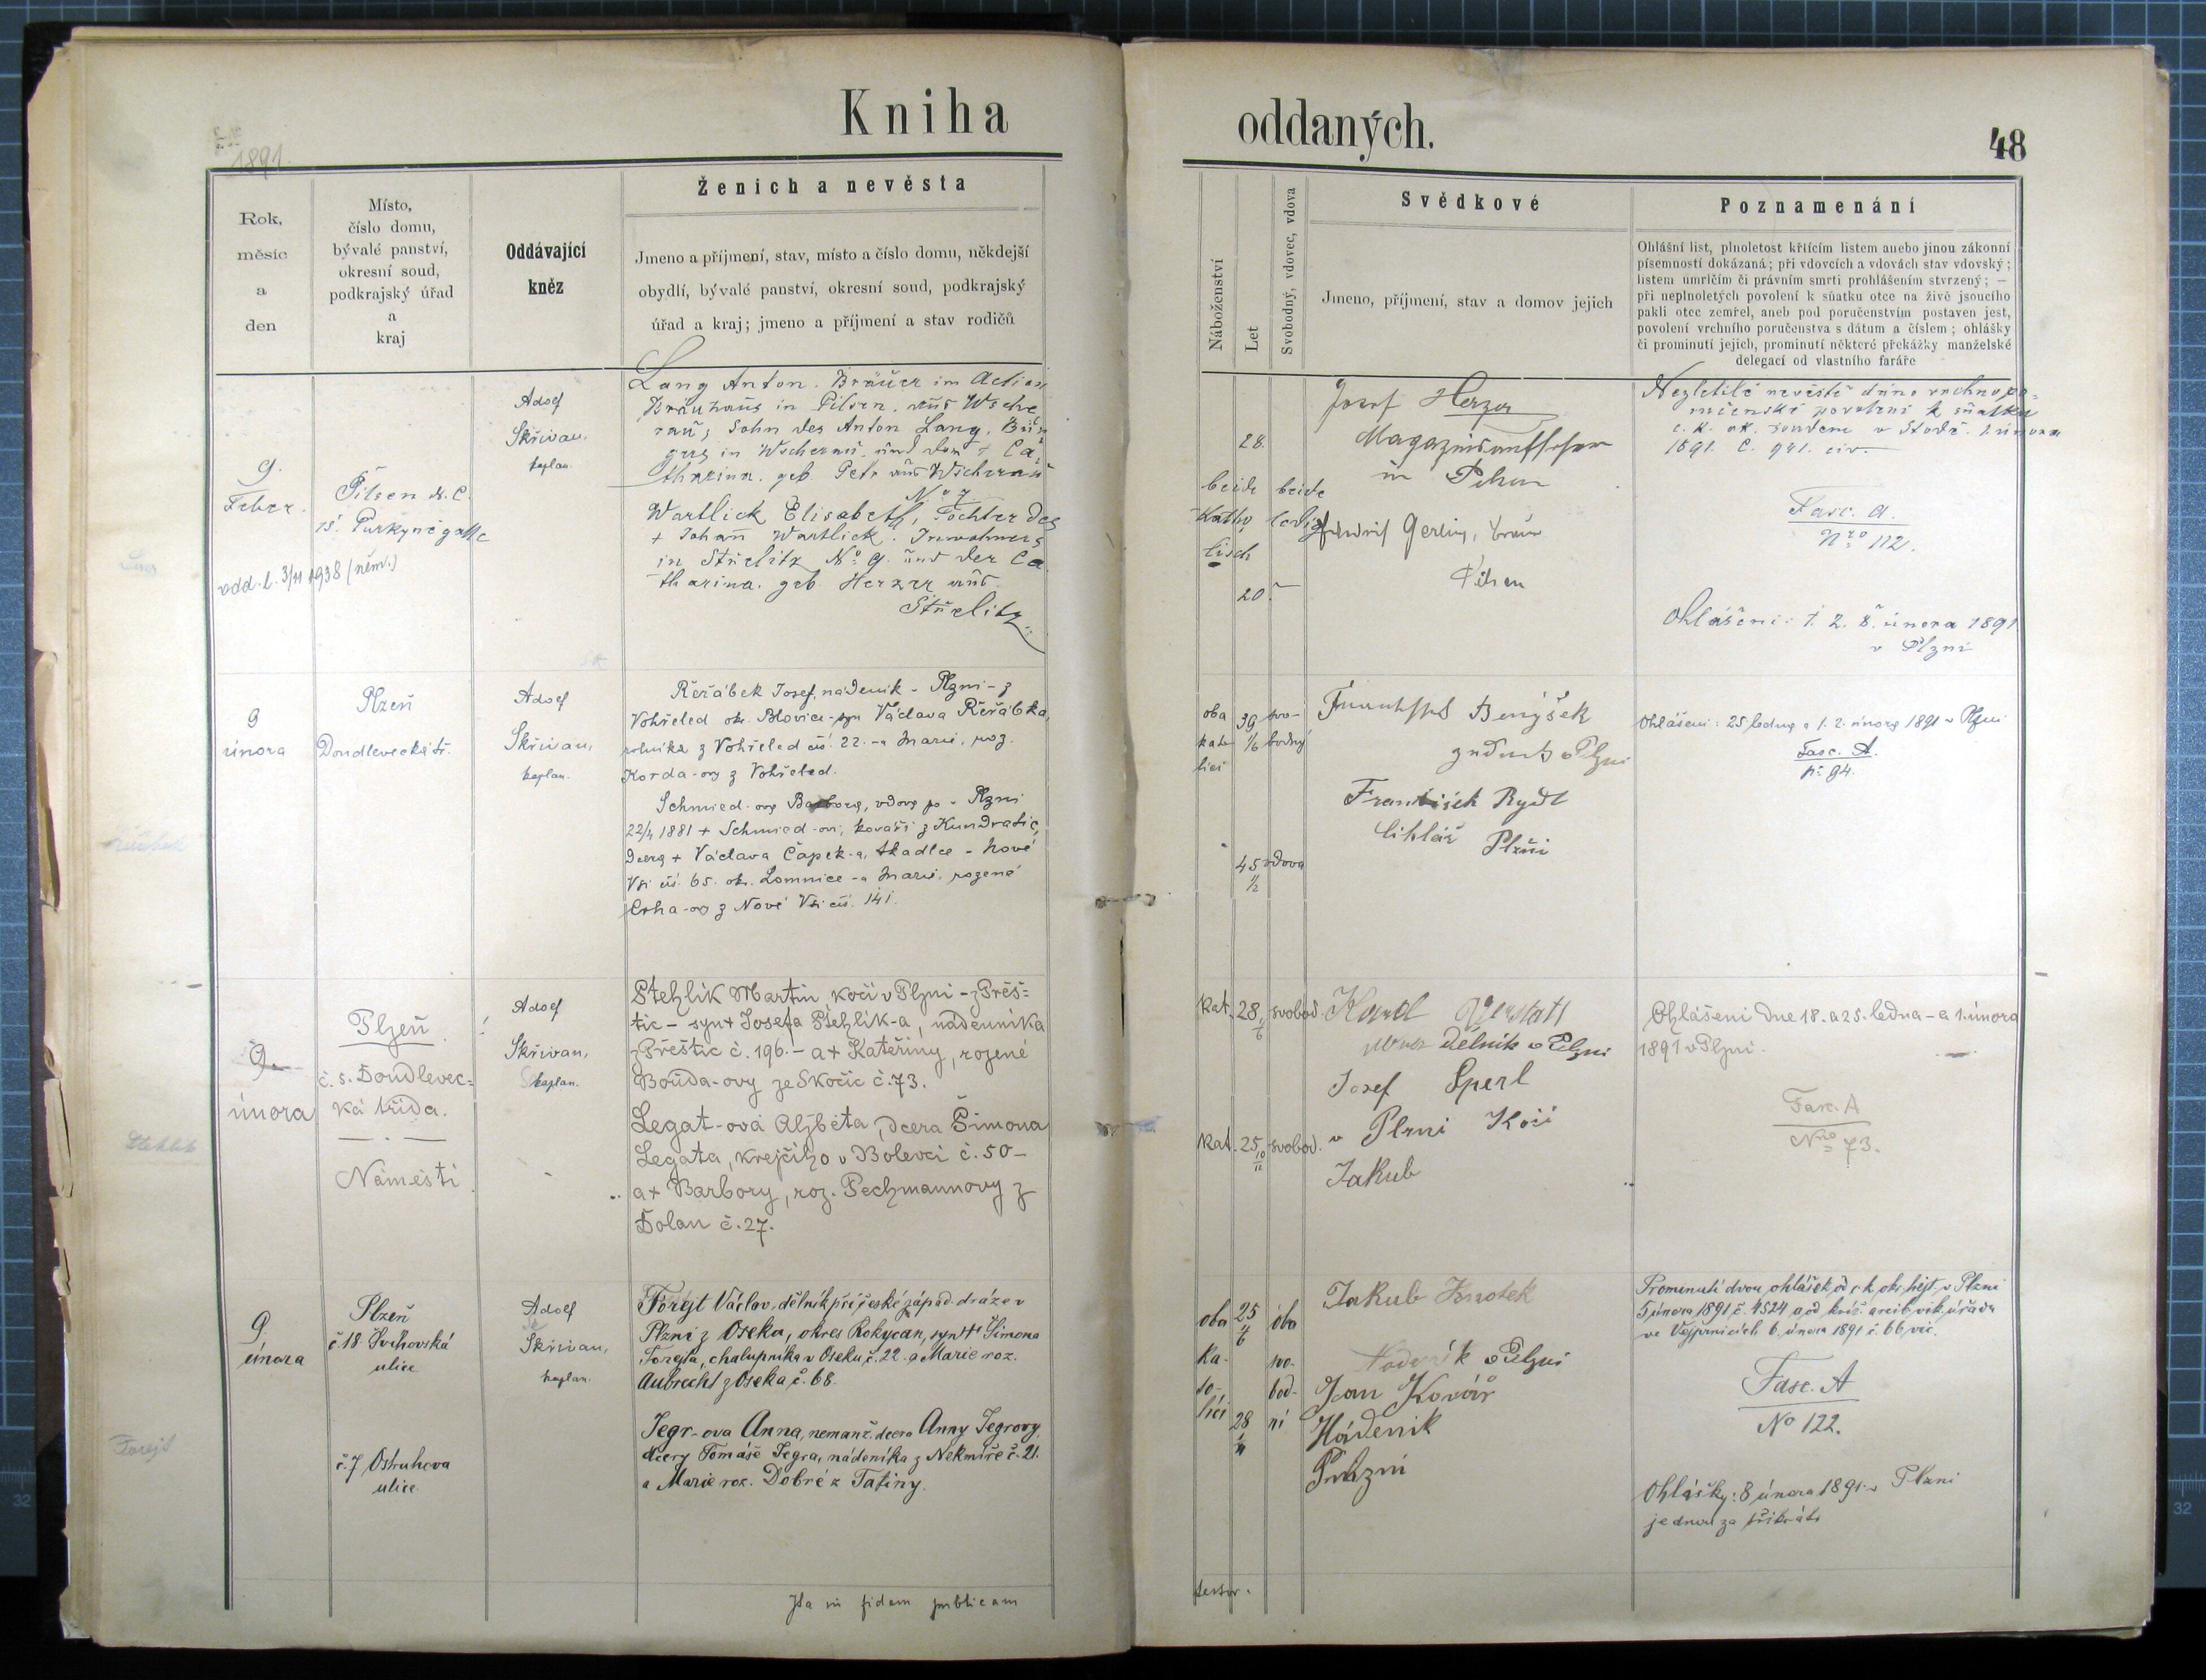 Kniha
oddaných.
48
1891.
Rok,
měsíc
a
den
Místo,
číslo domu,
bývalé panství,
okresní soud,
podkrajský úřad
a
kraj
Oddávající
kněz
Ženich a nevěsta
Jmeno a příjmení, stav, místo a číslo domu, někdejší
obydlí, bývalé panství, okresní soud, podkrajský
úřad a kraj; jmeno a příjmení a stav rodičů
Náboženství
Let
Svobodný, vdovec, vdova
Svědkové
Jmeno, příjmení, stav a domov jejich
Poznamenání
Ohlášní list, plnoletost křtícím listem anebo jinou zákonní
písemností dokázaná; při vdovcích a vdovách stav vdovský;
listem úmrlčím či právním smrti prohlášením stvrzený; —
při neplnoletých povolení k sňatku otce na živě jsoucího
pakli otec zemřel, aneb pod poručenstvím postaven jest,
povolení vrchního poručenstva s dátum a číslem; ohlášky
či prominutí jejich, prominutí některé překážky manželské
delegací od vlastního faráře
9.
Feber.
Pilsen N. C.
15. Purkyněgasse
odd. l. 3/11 1938 (něm.)
Adolf
Skřivan,
kaplan.
Lang Anton. Bräuer im Actien
Bräuhaus in Pilsen, aus Wsche
rau, Sohn des Anton Lang, Bür
gers in Wscherau, und der + Ca
tharina, geb. Petr aus Wscherau
No 7
Wartlick Elisabeth, Tochter des
+ Johan Wartlick, Inwohners
in Střelitz No 9. und der Ca
tharina, geb. Herzer aus
Střelitz
beide
Katho
lisch
28.
20.
beide
ledig
Josef Herzer
in Pilsen
Pilsen
Nezletilé nevěstě dáno vrchnopo=
ručenské povolení k sňatku
c. k. ok. soudem v Stodě. 1. února
1891. C. 941. civ.
Fasc. A.
Nro 112.
Ohlášeni: 1. 2. 8. února 1891
v Plzni
9
února
Plzeň
Doudlevecká tř.
Adolf
Skřivan,
kaplan.
Řeřábek Josef, nádeník v Plzni - z
Vohřeled okr. Blovice - syn Václava Řeřábka,
rolníka z Vohřeled čís. 22. - a Marie, roz.
Korda-ovy z Vohřeled.
Schmied-ova Barbora, vdova po v Plzni
22/4 1881 + Schmied-ovi, kováři z Kundratic,
dcera + Václava Čapek-a, tkadlce v Nové
Vsi čís. 65. okr. Lomnice - a Marie, rozené
Crha-ovy z Nové Vsi čís. 141.
oba
kato
líci
39
1/6
svo-
bodný
45
1/2
vdova
Benýšek
František Rydl
Cihlář Plzni
Ohlášeni: 25 ledna a 1. 2. února 1891 v Plzni
Fasc. A.
No 94.
9.
února
Plzeň
č. 5. Doudlevec=
ká třída.
Náměstí
Adolf
Skřivan,
kaplan.
Stehlík Martin, kočí v Plzni - z Přeš=
tic - syn + Josefa Stehlík-a, nádenníka
z Přeštic č. 196. - a + Kateřiny, rozené
Bouda-ovy ze Skočic č. 73.
Legat-ová Alžběta, dcera Šimona
Legata, krejčího v Bolevci č. 50 -
a + Barbory, roz. Pechmannovy z
Dolan č. 27.
Kat. 28 svobod.
Kat. 25 10/11 svobod.
Karel
dělník v Plzni
Josef Sperl
v Plzni Kočí
Jakub
Ohlášeni dne 18. a 25. ledna - a 1. února
1891 v Plzni.
Fasc. A
Nro 73.
9
února
Plzeň
č. 18 Švihovská
ulice
č. 7 Ostruhova
ulice
Adolf
Skřivan,
kaplan.
Forejt Václav, dělník při české západ. dráze v
Plzni z Oseka, okres Rokycan, syn + Šimona
Forejta, chalupníka v Oseku č. 22. a Marie roz.
Aubrecht z Oseka č. 68.
Jegr-ova Anna, nemanž. dcera Anny Jegrovy,
dcery Tomáše Jegra, nádeníka z Nekmíře č. 21.
a Marie roz. Dobré z Tatiny.
oba
ka-
to-
líci
25
28
oba
svo-
bod-
ní
Jakub Knotek
v Plzni
Jan Kovář
Nádeník
Prominutí dvou ohlášek od c. k. okr. hejt. v Plzni
5 února 1891 č. 4524 a od kníž. arcib. vik. úřadu
ve Vejprnicích 6. února 1891 č. 66 vic.
Fasc. A
No 122.
Ohlášky: 8 února 1891 v Plzni
jednou za třikráte
Forejt
Stehlík
Ita in fidem publicam
testor.